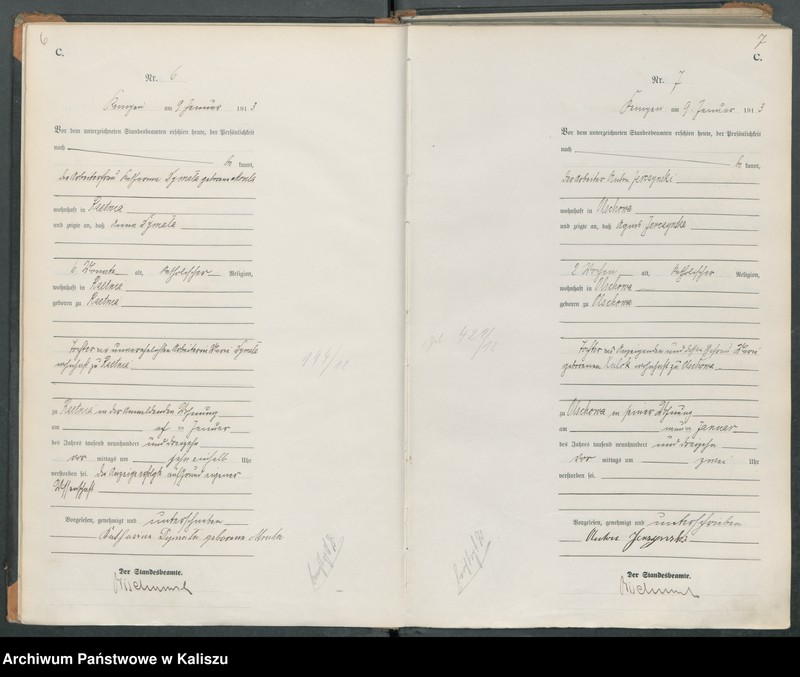 6
C.
Nr. 6
Kempen am 9 Januar 1913
Vor dem unterzeichneten Standesbeamten erschien heute, der Persönlichkeit
nach
be kannt,
die Arbeiterfrau Katharina Dymala geborene
wohnhaft in Rzetnia
und zeigte an, daß Dymala
6 Monate alt, katholischer Religion,
wohnhaft in Rzetnia
geboren zu Rzetnia
Tochter der unverehelichten Arbeiterin Marie Dymala
wohnhaft zu Rzetnia
zu Rzetnia in der Anmeldenden Wohnung
am Januar
des Jahres tausend neunhundert und dreizehn
vor mittags um zehn einhalb Uhr
verstorben sei. Die Anzeige erfolgt auf Grund eigener
Wissenschaft
Vorgelesen, genehmigt und unterschrieben
Katharina Dymala geborene
Der Standesbeamte.
7
C.
Nr. 7
Kempen am 9. Januar 1913
Vor dem unterzeichneten Standesbeamten erschien heute, der Persönlichkeit
nach
be kannt,
der Arbeiter Anton Jerczynski
wohnhaft in Olschowa
und zeigte an, daß Agnes Jerczynska
2 Wochen alt, katholischer Religion,
wohnhaft in Olschowa
geboren zu Olschowa
Tochter des Anzeigenden und dessen Ehefrau Marie
geborenen wohnhaft zu Olschowa
zu Olschowa in seiner Wohnung
am neun Januar
des Jahres tausend neunhundert und dreizehn
vor mittags um zwei Uhr
verstorben sei.
Vorgelesen, genehmigt und unterschrieben
Anton Jerczynski
Der Standesbeamte.
Archiwum Państwowe w Kaliszu